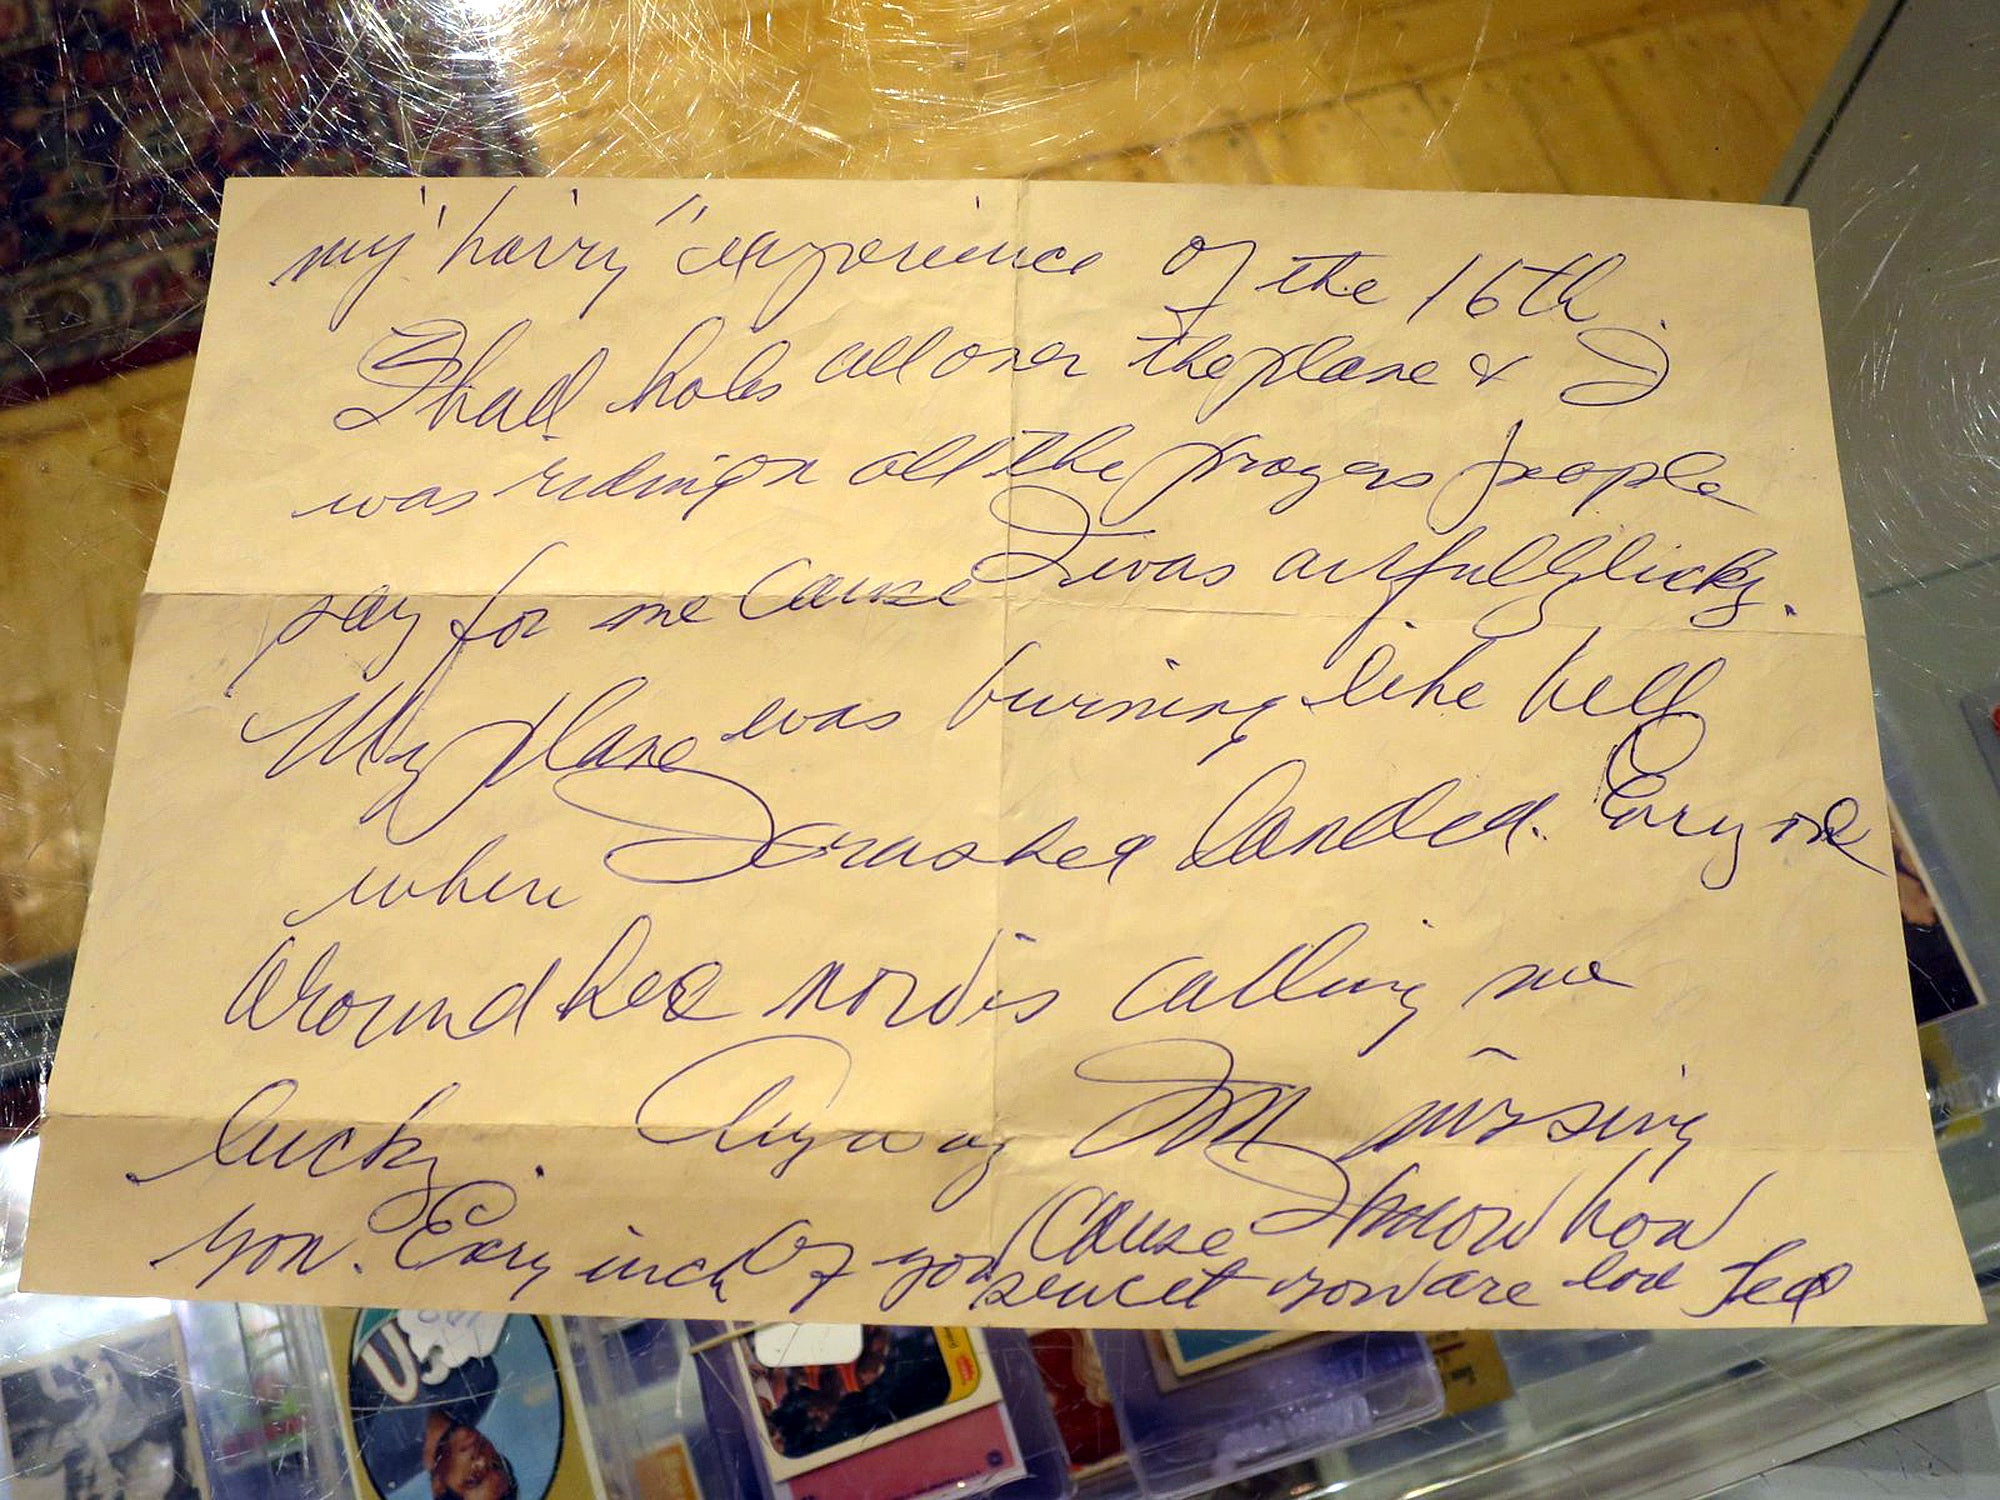 my "hairy" experience of the 16th.
I had holes all over the plane & I
was riding on all the prayers people
say for me cause I was awfully lucky.
My plane was burning like hell
where I crashed landed. Everyone
around here now is calling me
lucky. Anyway I'm missing
you. Every inch of you cause I know how
sweet you are